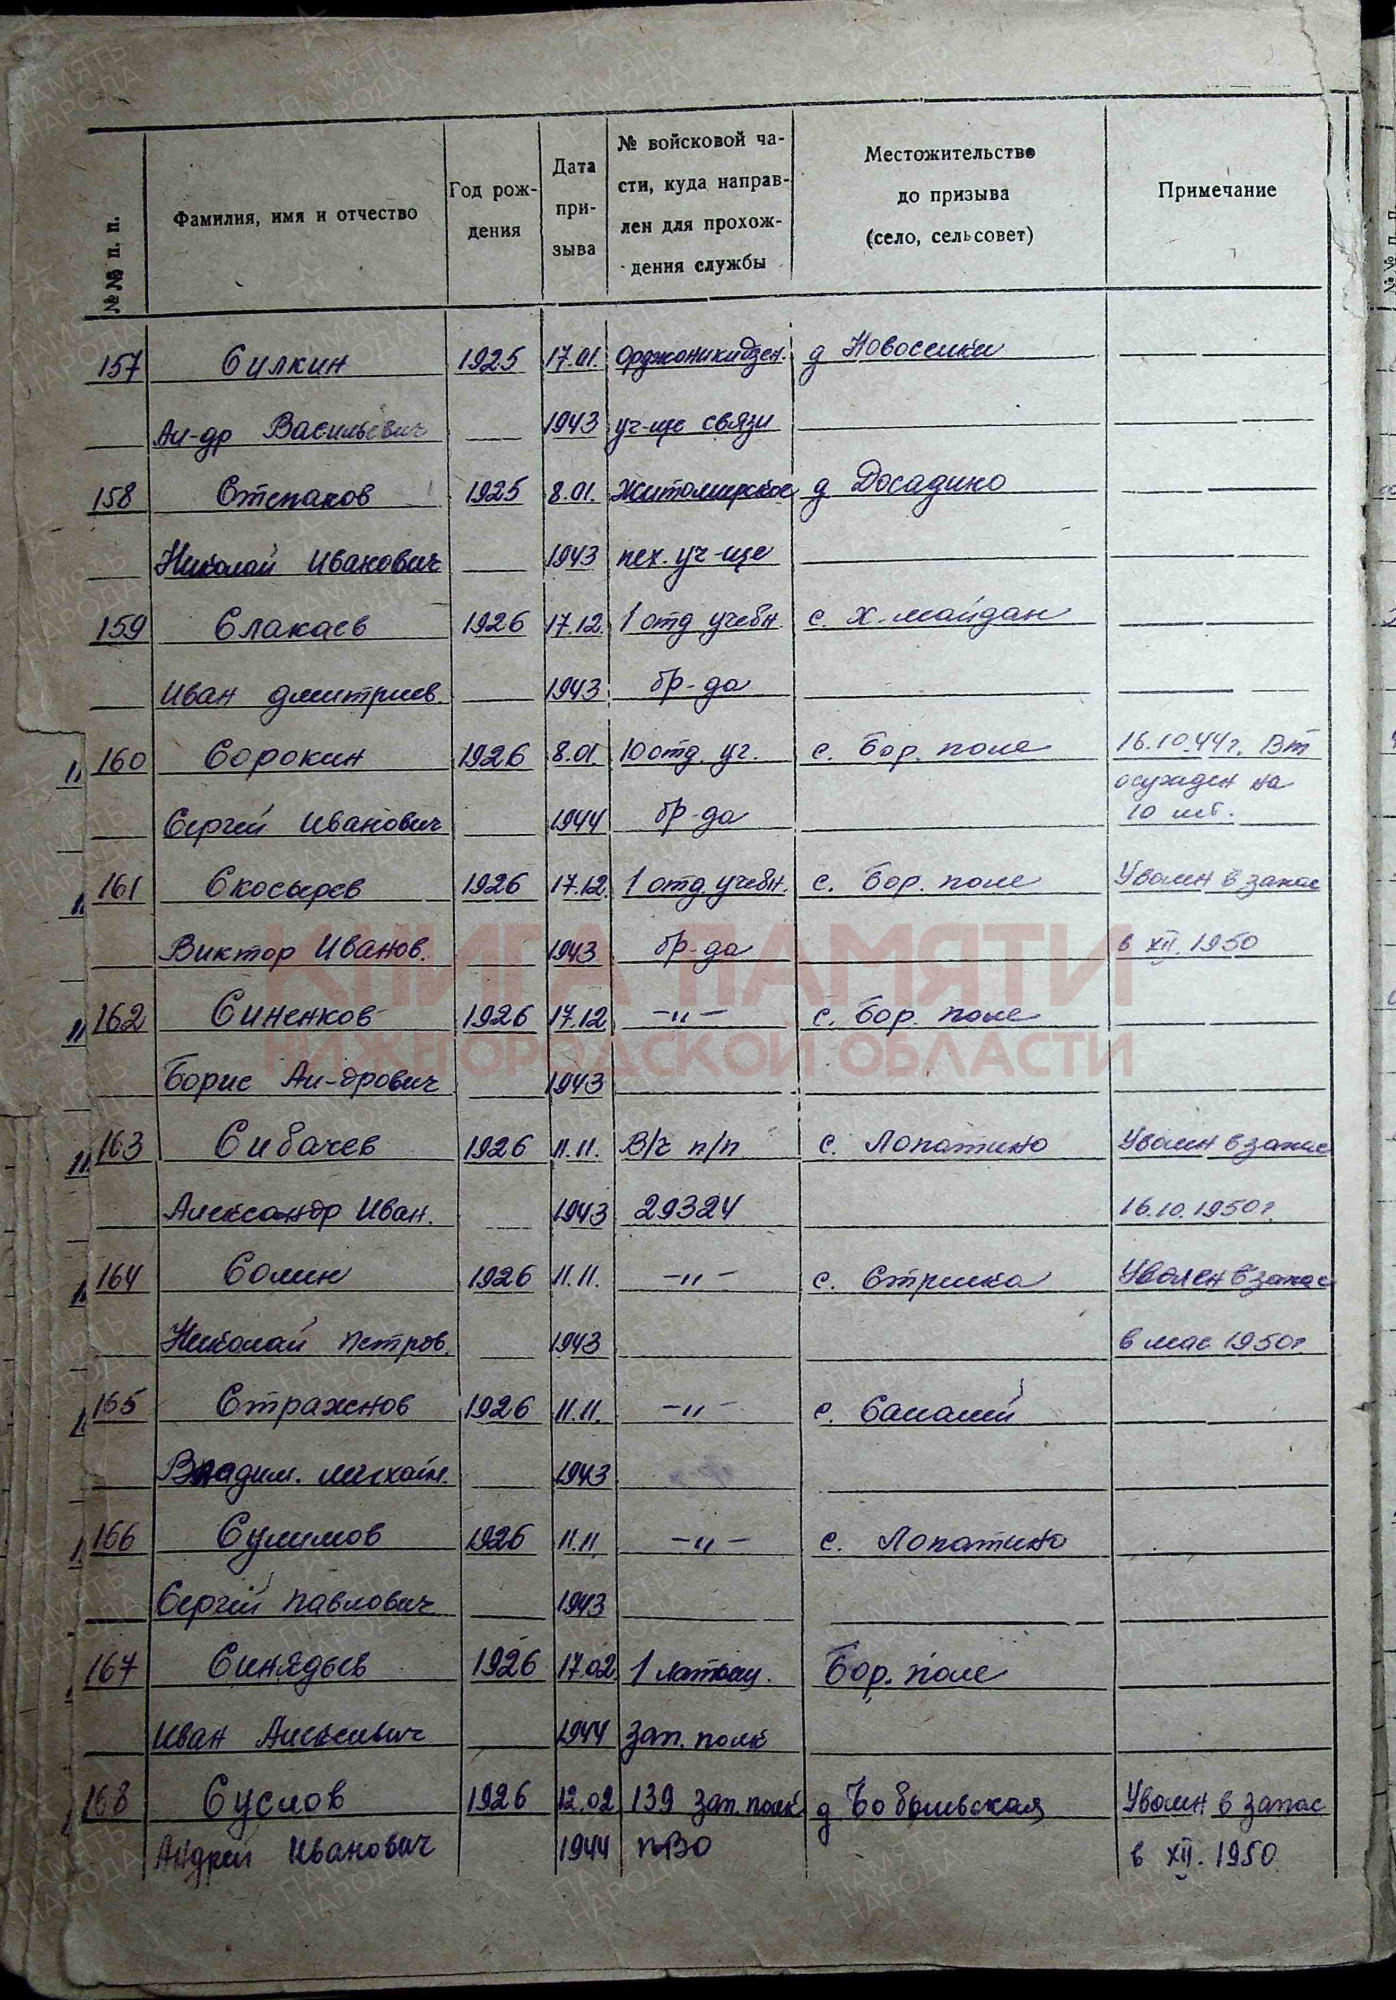 №№ п. п. Фамилия, имя и отчество Год рож- дения Дата при- зыва № войсковой ча- сти, куда направ- лен для прохож- дения службы Местожительство до призыва (село, сельсовет) Примечание
157 Силкин 1925 17.01. Орджоникидзен. д Новоселки
Ал-др Васильевич 1943 уч-ще связи
158 Степаков 1925 8.01. Житомирское д Досадино
Николай Иванович 1943 пех. уч-ще
159 Слакаев 1926 17.12. 1 отд учебн. с. Х-майдан
Иван Дмитриев. 1943 бр-да
160 Сорокин 1926 8.01. 10 отд. уч. с. Бор. поле 16.10.44 г. Вт
осужден на
Сергей Иванович 1944 бр-да 10 лет.
161 Скосырев 1926 17.12 1 отд. учебн. с. Бор. поле Уволен в запас
Виктор Иванов. 1943 бр-да в XII. 1950
162 Синенков 1926 17.12 -"- с. Бор. поле
Борис Ал-дрович 1943
163 Сибачев 1926 11.11. В/ч п/п с. Лопатино Уволен в запас
Александр Иван. 1943 29324 16.10.1950 г
164 Солин 1926 11.11. -"- с. Стрелка Уволен в запас
Николай Петров. 1943 в мае 1950 г
165 Стражнов 1926 11.11. -"- с. Салалей
Владим. Михайл. 1943
166 Сулимов 1926 11.11 -"- с. Лопатино
Сергей Павлович 1943
167 Синядьев 1926 17.02 1 латыш. Бор. поле
Иван Алексеевич 1944 зап. полк
168 Суслов 1926 12.02 139 зап. полк д Бобыльская Уволен в запас
Андрей Иванович 1944 ПВО в XII. 1950
КНИГА ПАМЯТИ
НИЖЕГОРОДСКОЙ ОБЛАСТИ
ПАМЯТЬ НАРОДА